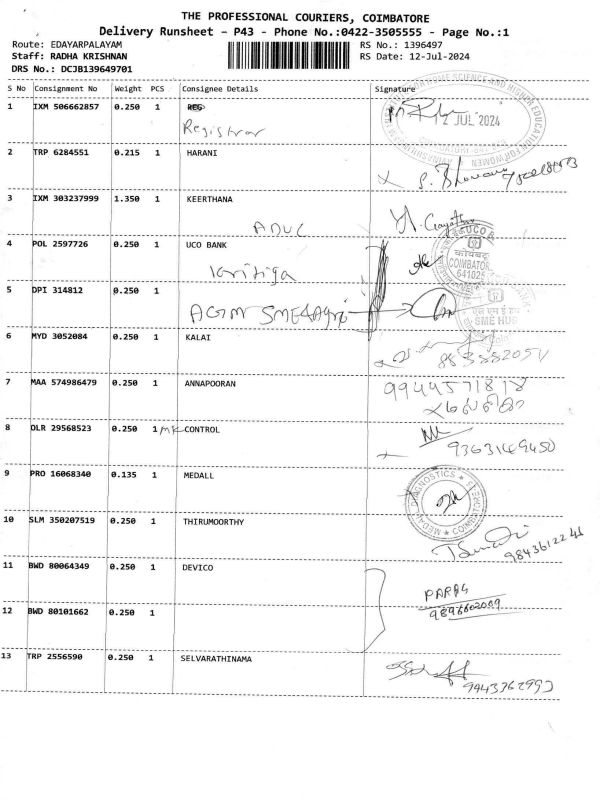 THE PROFESSIONAL COURIERS, COIMBATORE
Delivery Runsheet - P43 - Phone No.:0422-3505555 - Page No.:1
Route: EDAYARPALAYAM RS No.: 1396497
Staff: RADHA KRISHNAN RS Date: 12-Jul-2024
DRS No.: DCJB139649701
S No Consignment No Weight PCS Consignee Details Signature
1 IXM 506662857 0.250 1 REG
Registrar
12 JUL 2024
2 TRP 6284551 0.215 1 HARANI
3 IXM 303237999 1.350 1 KEERTHANA
ADUC
4 POL 2597726 0.250 1 UCO BANK
UCO
COIMBATOR
641025
5 DPI 314812 0.250 1
AGM SME&Agri
SME HUB
6 MYD 3052084 0.250 1 KALAI
7 MAA 574986479 0.250 1 ANNAPOORAN
9944571818
8 DLR 29568523 0.250 1 CONTROL
9363169450
9 PRO 16068340 0.135 1 MEDALL
MEDALL DIAGNOSTICS
10 SLM 350207519 0.250 1 THIRUMOORTHY
9843612241
11 BWD 80064349 0.250 1 DEVICO
PARAG
12 BWD 80101662 0.250 1
13 TRP 2556590 0.250 1 SELVARATHINAMA